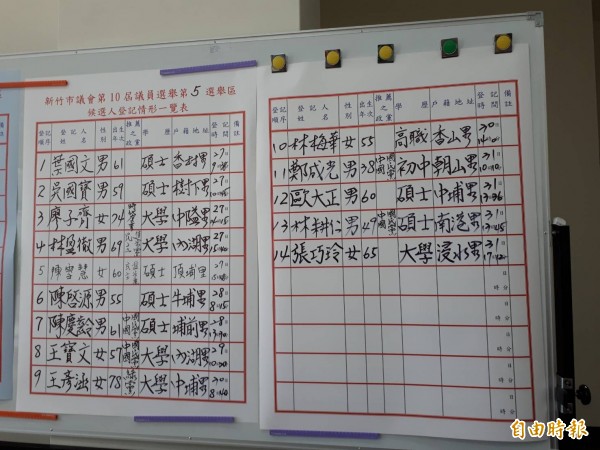 新竹市議會第10屆議員選舉第5選舉區
候選人登記情形一覽表
登記順序 登記人姓名 性別 出生年次 推薦之政黨 學歷 戶籍地址 登記時間 備註
1 葉國文 男 61 碩士 香村里
2 吳國寶 男 59 碩士 樹下里
3 廖子齊 女 74 時代力量 大學 中隘里
4 林盈徹 男 69 民主進步黨 大學 內湖里
5 陳雪慧 女 60 碩士 頂埔里
6 陳啓源 男 55 碩士 牛埔里
7 陳慶齡 男 61 中國國民黨 碩士 埔前里
8 王寶文 女 51 中國國民黨 大學 內湖里
9 王彥涵 女 78 綠黨 大學 中埔里
登記順序 登記人姓名 性別 出生年次 推薦之政黨 學歷 戶籍地址 登記時間 備註
10 林梅華 女 55 高職 香山里
11 鄭成光 男 38 中國國民黨 初中 朝山里
12 歐大正 男 60 碩士 中埔里
13 林耕仁 男 49 中國國民黨 碩士 南港里
14 張巧泠 女 65 大學 浸水里
日
時 分
日
時 分
日
時 分
日
時 分
自由時報